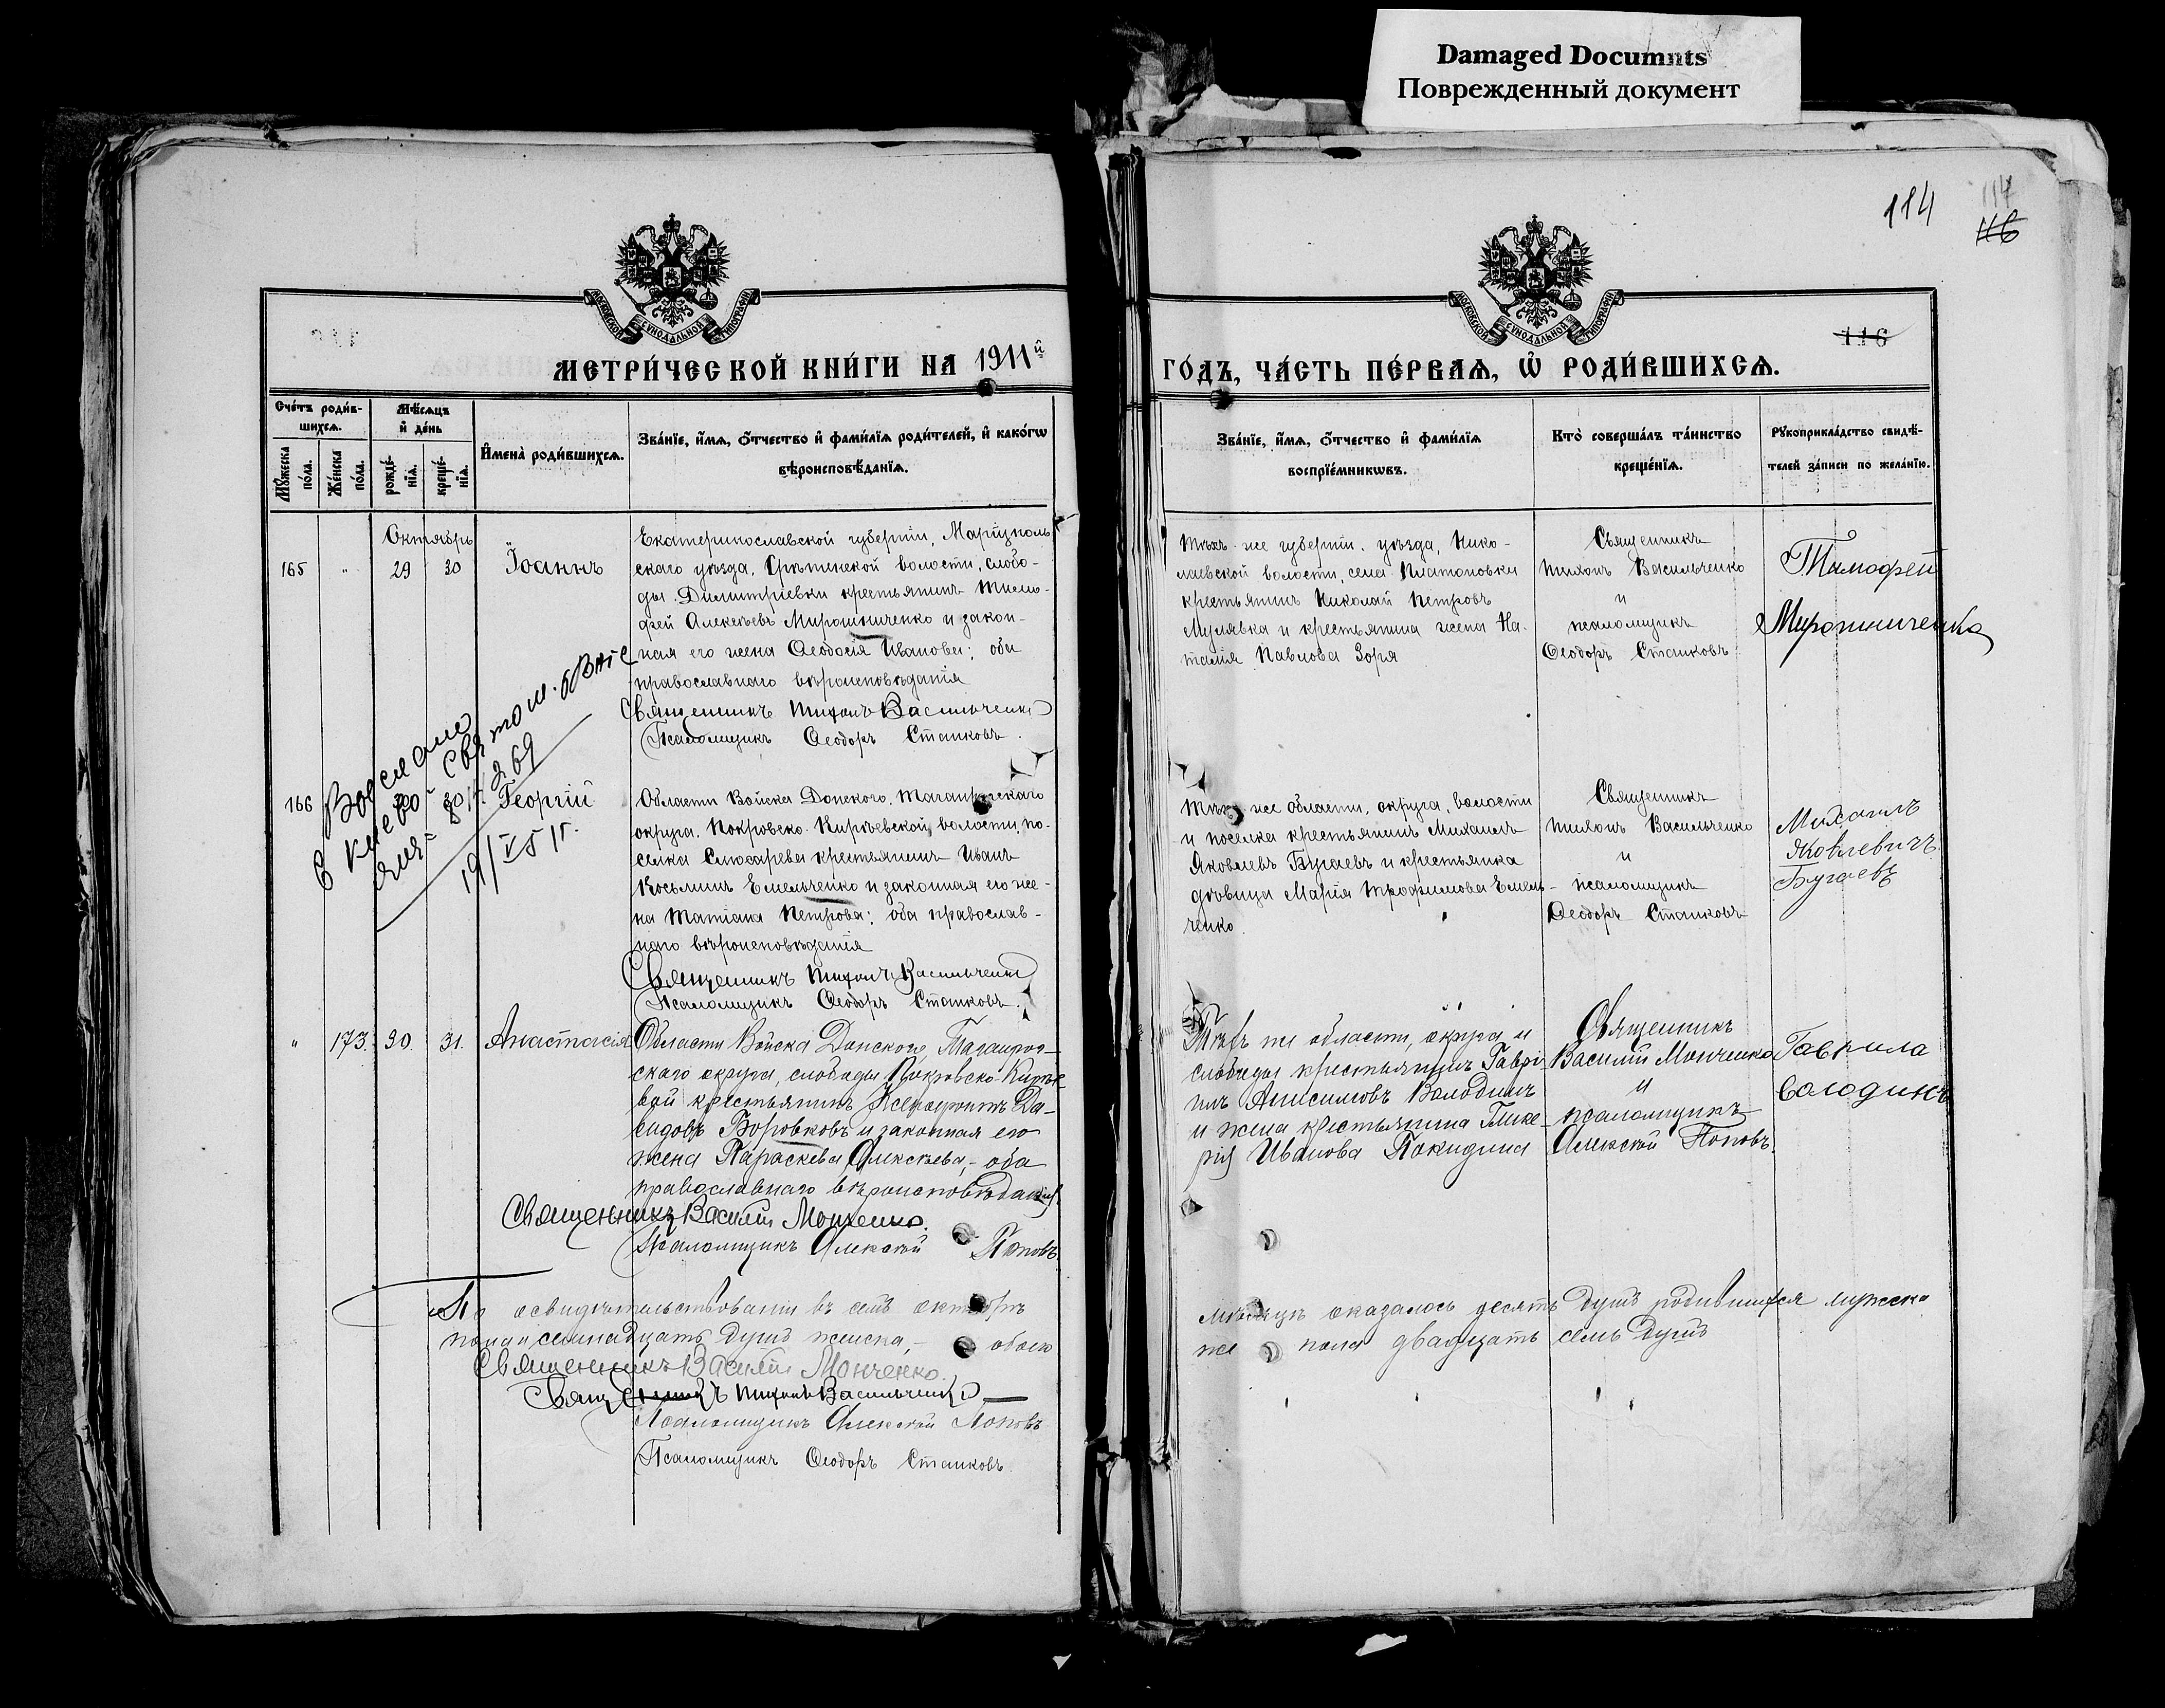 Damaged Documnts
Поврежденный документ
114
114
116
116
МОСКОВСКОЙ СУНОДАЛЬНОЙ ТИПОГРАФІИ
МОСКОВСКОЙ СУНОДАЛЬНОЙ ТИПОГРАФІИ
МЕТРИ́ЧЕСКОЙ КНИ́ГИ НА 1911й
ГО́ДЪ, ЧА́СТЬ ПЕ́РВАѦ, Ѡ҆ РОДИ́ВШИХСѦ.
Сче́тъ роди́в-
шихсѧ.
Мѹ́жеска по́ла.
Же́нска по́ла.
Мѣ́сѧцъ
и҆ де́нь
рожде́-
нїѧ.
креще́-
нїѧ.
И҆мена̀ роди́вшихсѧ.
Зва́нїе, и҆́мѧ, ѻ҆́тчество и҆ фами́лїѧ роди́телей, и҆ како́гѡ
вѣроисповѣ́данїѧ.
Зва́нїе, и҆́мѧ, ѻ҆́тчество и҆ фами́лїѧ
воспрїе́мникѡвъ.
Кто̀ соверша́лъ та́инство
креще́нїѧ.
Рѹкоприкла́дство свидѣ́-
телей за́писи по жела́нїю.
Октябрь
165 " 29 30 Іоаннъ
Екатеринославской губерніи, Маріуполь
скаго уѣзда, Срѣтенской волости, слобо-
ды Димитріевки крестьянинъ Тимо-
фей Алексѣевъ Мирошниченко и закон-
ная его жена Ѳеодосія Иванова; оба
православнаго вѣроисповѣданія
Священникъ Тихонъ Васильченко
Псаломщикъ Ѳеодоръ Станковъ.
Тѣхъ же губерніи, уѣзда, Нико-
лаевской волости, села Платоновки
крестьянинъ Николай Петровъ
Мулявка и крестьянина жена На-
талія Павлова Зоря
Священникъ
Тихонъ Васильченко
и
псаломщикъ
Ѳеодоръ Станковъ
Тимофей
Мирошниченко
19/V 51г.
166 30 30 Георгій
Области Войска Донского, Таганрогскаго
округа, Покровско-Кирѣевской волости, по-
селка Слюсарева крестьянинъ Иванъ
Косьминъ Емельченко и законная его же-
на Татіана Петрова; оба православ-
наго вѣроисповѣданія
Священникъ Тихонъ Васильченко
Псаломщикъ Ѳеодоръ Станковъ.
Тѣхъ же области, округа, волости
и поселка крестьянинъ Михаилъ
Яковлевъ Бугаевъ и крестьянка
дѣвица Марія Трофимова Емель-
ченко.
Священникъ
Тихонъ Васильченко
и
псаломщикъ
Ѳеодоръ Станковъ
Михаилъ
Яковлевичъ
Бугаевъ
" 173. 30. 31. Анастасія
Области Войска Донского, Таганрог-
скаго округа, слободы Покровско-Кирѣе-
вой крестьянинъ Ксенофонтъ Да-
видовъ Боровковъ и законная его
жена Параскева Алексѣева, - оба
православнаго вѣроисповѣданія
Священникъ Василій Монченко.
Псаломщикъ Алексѣй Поповъ.
Тѣхъ же области, округа и
слободы крестьянинъ Гаврі-
илъ Анисимовъ Володинъ
и жена крестьянина Глике-
рія Иванова Покидина
Священникъ
Василій Монченко
и
псаломщикъ
Алексѣй Поповъ.
Гаврила
Володинъ
По освидѣтельствованіи въ семъ октябрѣ мѣсяцѣ оказалось десять душъ родившихся мужска
пола и семнадцать душъ женска, - обоего же пола двадцать семь душъ
Священникъ Василій Монченко.
Священникъ Тихонъ Васильченко
Псаломщикъ Алексѣй Поповъ
Псаломщикъ Ѳеодоръ Станковъ.